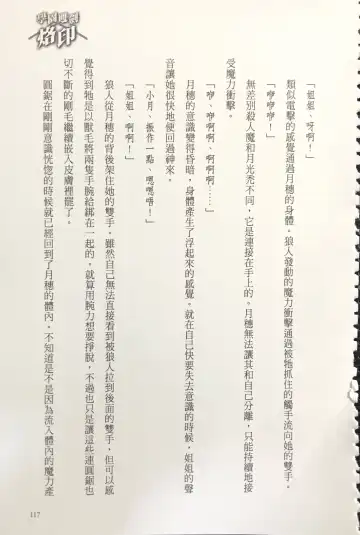 學園雙襲
烙印
「姐姐、呀啊！」
類似電擊的感覺通過月穗的身體。狼人發動的魔力衝擊通過被牠抓住的觸手流向她的雙手。
「啊啊啊！」
無差別殺人魔和月光禿不同，它是連接在手上的。月穗無法讓其和自己分離，只能持續地接
受魔力衝擊。
「啊、啊啊啊、啊啊……」
月穗的意識變得昏暗，身體產生了浮起來的感覺。就在自己快要失去意識的時候，姐姐的聲
音讓她很快地便回過神來。
「小月、振作一點、嗯嗯唔！」
「姐姐、啊啊！」
狼人從月穗的背後架住她的雙手。雖然自己無法直接看到被狼人拉到後面的雙手，但可以感
覺得到牠是以獸毛將兩隻手腕給綁在一起的。就算用腕力想要掙脫，不過也只是讓這些連圓鋸也
切不斷的剛毛繼續嵌入皮膚裡罷了。
圓鋸在剛剛意識恍惚的時候就已經回到了月穗的體內，不知道是不是因為流入體內的魔力產
117